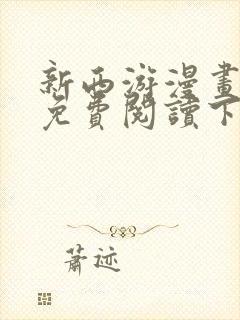 新西游漫畫
免費閱讀下
蕭迹